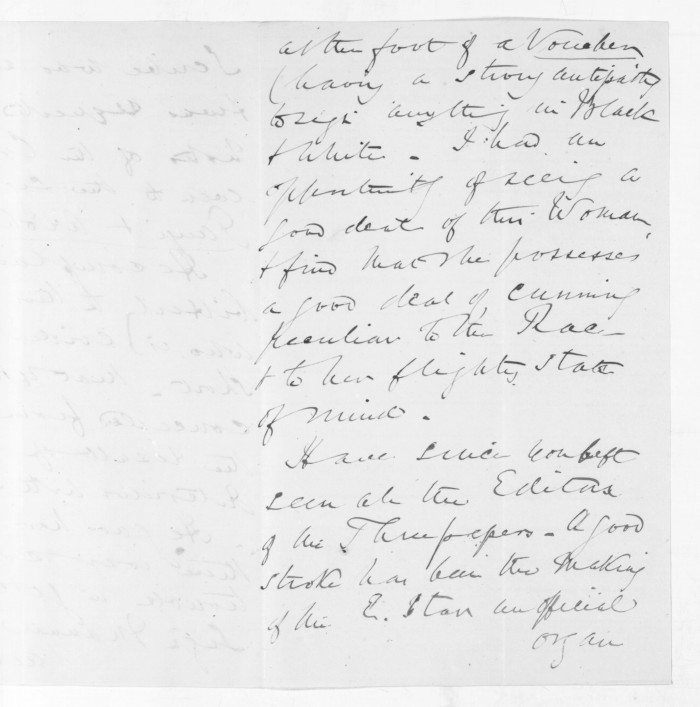 at the foot of a Voucher
(having a strong antipathy
to sign anything in Black
& White - I had an
opportunity of seeing a
good deal of this Woman,
& find that she possesses
a good deal of cunning
peculiar to the Race
& to her flighty state
of mind -
Have since you left
seen all the Editors
of the Three papers - A good
stroke has been the making
of the E. Star an official
organ